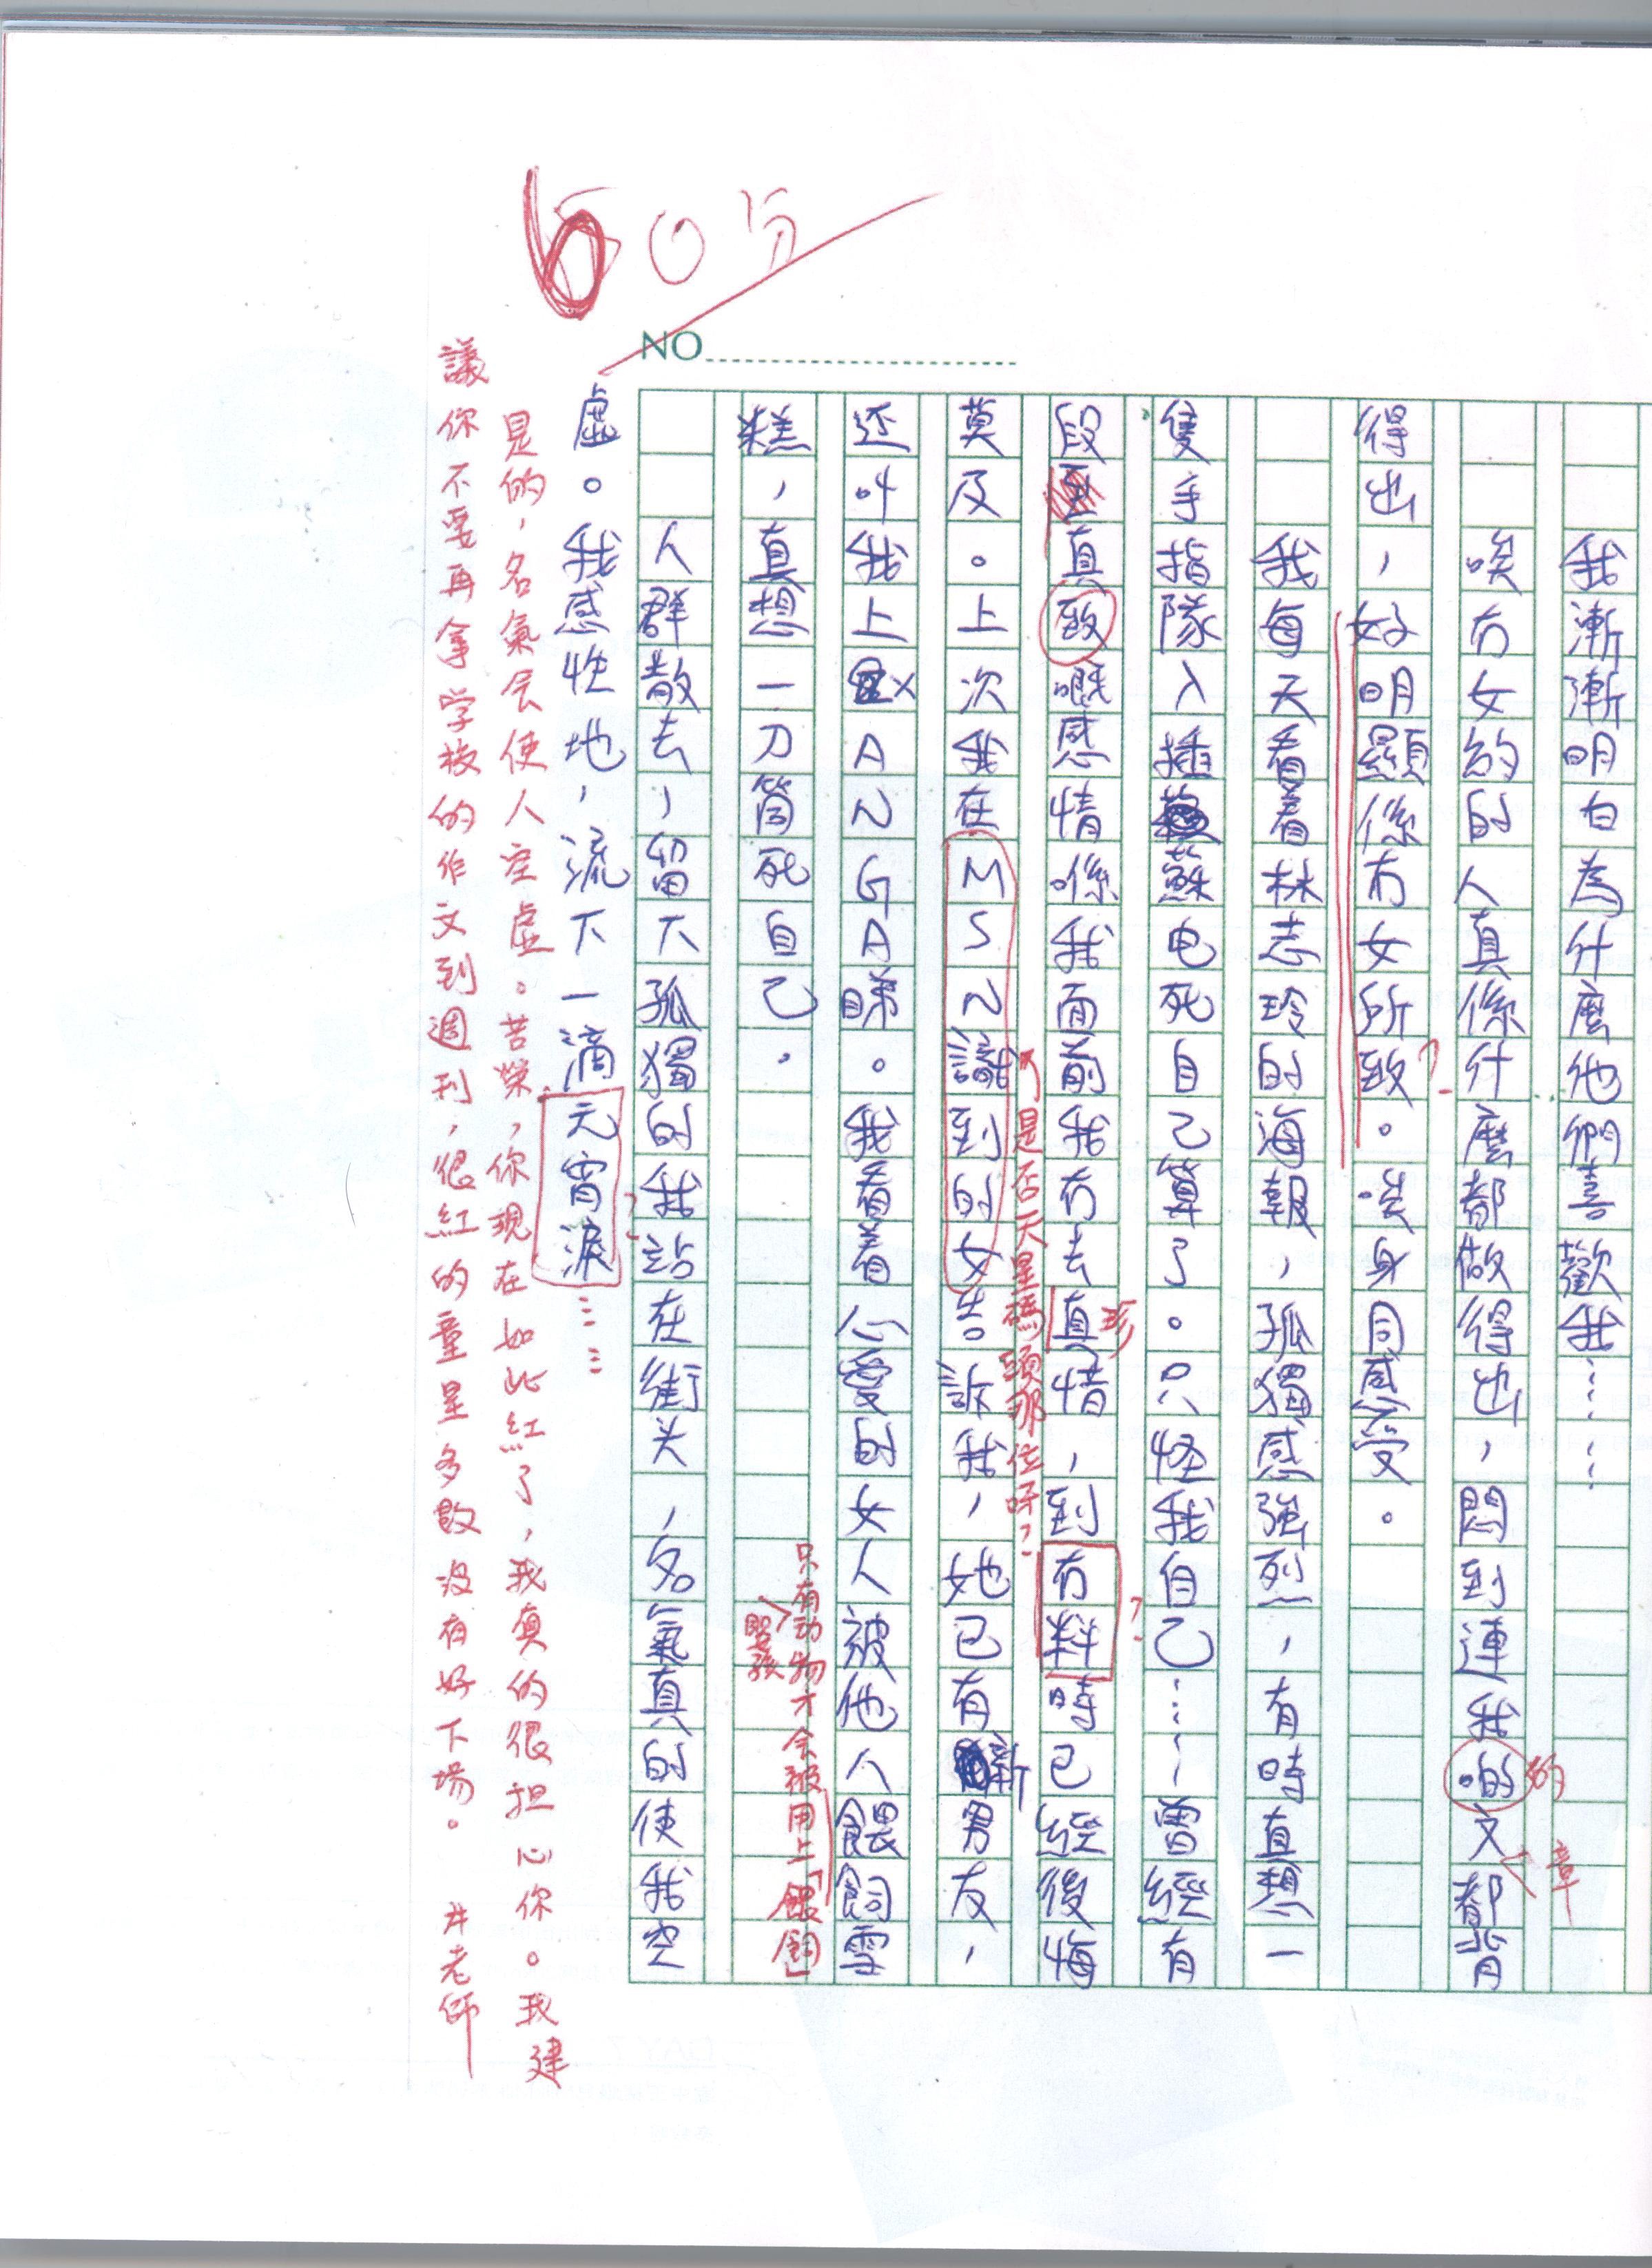 我漸漸明白為什麼他們喜歡我……
唉冇女的的人真係什麼都做得出，悶到連我啲文都背
得出，好明顯係冇女所致。唉身同感受。
我每天看着林志玲的海報，孤獨感強烈，有時真想一
隻手指隊入插蘇电死自己算了。只怪我自己……曾經有
段真致嘅感情喺我面前我冇去真惜，到冇料時已經後悔
莫及。上次我在MSN識到的女告訴我，她已有新男友，
还叫我上XANGA睇。我看着心愛的女人被他人餵飼雪
糕，真想一刀篤死自己。
人群散去，留下孤獨的我站在街头，名氣真的使我空
虛。我感性地，流下一滴元宵淚……
的
章
？
珍
？
是否天星碼頭那位呀？
只有动物才会被用上「餵飼」
緊張
？
60分
NO
是的，名氣会使人空虛。苦榮，你現在如此紅了，我真的很担心你。我建
議你不要再拿学校的作文到週刊，很紅的童星多數没有好下場。 井老师